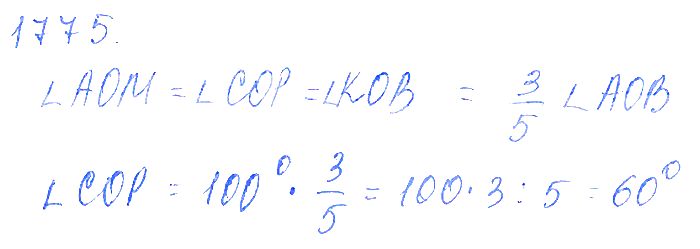 1775.
∠AOM = ∠COP = ∠KOB = 3/5 ∠AOB
∠COP = 100° · 3/5 = 100 · 3 : 5 = 60°